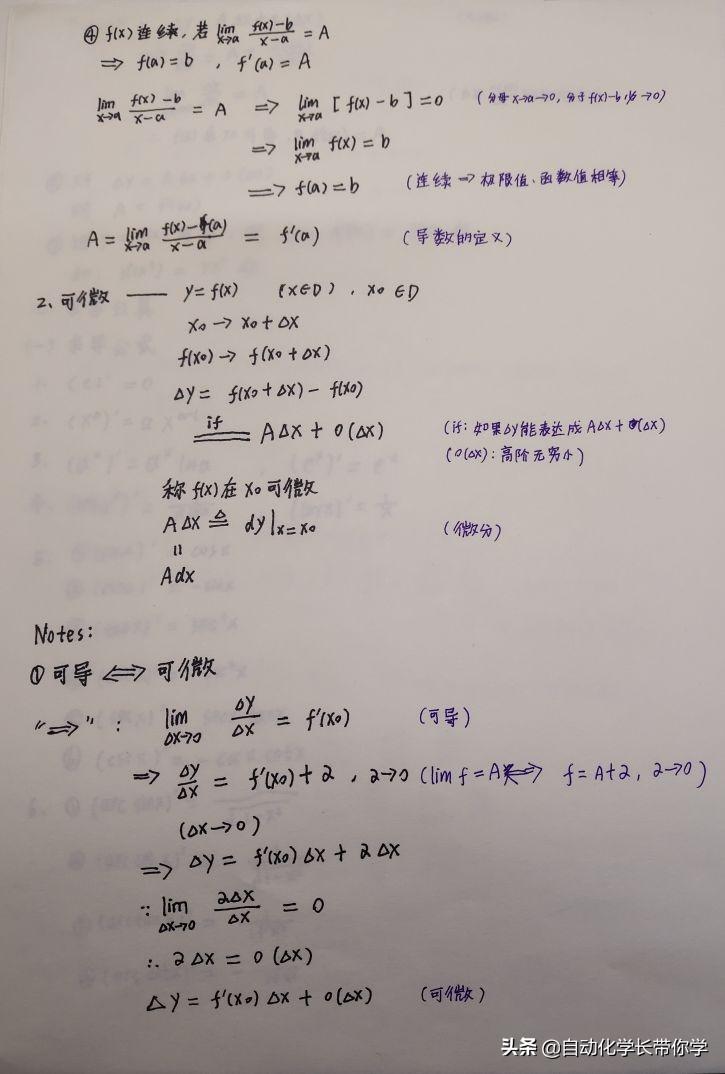 ④ f(x)连续, 若 lim x→a (f(x)-b)/(x-a) = A
⇒ f(a)=b , f'(a)=A
lim x→a (f(x)-b)/(x-a) = A ⇒ lim x→a [f(x)-b]=0 (分母x→a→0, 分子f(x)-b必→0)
⇒ lim x→a f(x)=b
⇒ f(a)=b (连续→极限值、函数值相等)
A = lim x→a (f(x)-f(a))/(x-a) = f'(a) (导数的定义)
2、可微 —— y=f(x) (x∈D), x0∈D
x0→x0+Δx
f(x0)→f(x0+Δx)
Δy= f(x0+Δx)-f(x0)
if == AΔx+0(Δx) (if: 如果Δy能表达成AΔx+0(Δx)
(0(Δx): 高阶无穷小)
称f(x)在x0可微
AΔx ≜ dy|x=x0 (微分)
||
Adx
Notes:
①可导⇔可微
"⇒": lim Δx→0 Δy/Δx = f'(x0) (可导)
⇒ Δy/Δx = f'(x0)+2, 2→0 (lim f=A ⇔ f=A+2, 2→0)
(Δx→0)
⇒ Δy= f'(x0)Δx+2Δx
∵ lim Δx→0 2Δx/Δx = 0
∴ 2Δx=0(Δx)
Δy=f'(x0)Δx+0(Δx) (可微)
头条 @自动化学长带你学